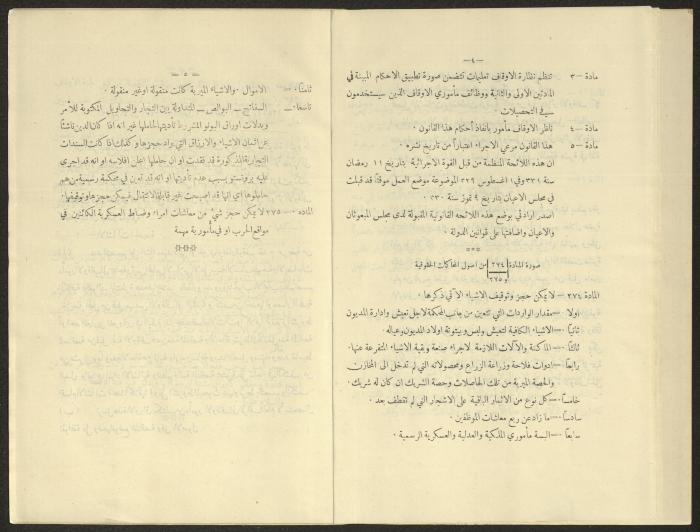 — ٤ —
مادة — ٣ تنظم نظارة الاوقاف تعليمات تتضمن صورة تطبيق الاحكام المبينة في
المادتين الاولى والثانية ووظائف مأموري الاوقاف الذين سيستخدمون
في التحصيلات
مادة — ٤ ناظر الاوقاف مأمور بانفاذ أحكام هذا القانون ٠
مادة — ٥ هذا القانون مرعي الاجراء اعتباراً من تاريخ نشره ٠
ان هذه اللائحة المنظمة من قبل القوة الاجرائية بتاريخ ١١ رمضان
سنة ٣٣١ وفي ١ اغسطوس ٣٢٩ الموضوعة موضع العمل موقتاً قد قبلت
في مجلس الاعيان بتاريخ ٤ تموز سنة ٣٣٠
اصدر ارادتي بوضع هذه اللائحه القانونية المقبولة لدى مجلس المبعوثان
والاعيان واضافتها على قوانين الدولة ٠
***
صورة المادة ٢٧٤ من اصول المحاكمات الحقوقية
و ٢٧٥
المادة ٢٧٤ — لا يمكن حجز وتوقيف الاشياء الآتي ذكرها ٠
اولا — مقدار الواردات التي تتعين من جانب المحكمة لاجل تعيش وادارة المديون
ثانياً — الاشياء الكافية لتعيش ولبس وبيتوتة اولاد المديون وعياله ٠
ثالثاً — الماكنة والآلات اللازمة لاجراء صنعة وبقية الاشياء المتفرعة عنها ٠
رابعاً — ادوات فلاحة وزراعة الزراع ومحصولاته التي لم تدخل الى المخازن
والحصة الميرية من تلك الحاصلات وحصة الشريك ان كان له شريك ٠
خامساً — كل نوع من الاثمار الباقية على الاشجار التي لم تقطف بعد ٠
سادساً — ما زاد عن ربع معاشات الموظفين ٠
سابعاً — البسة مأموري الملكية والعدلية والعسكرية الرسمية ٠
— ٥ —
ثامناً ٠ — الاموال ٠ والاشياء الميرية كانت منقولة او غير منقولة ٠
تاسعاً — السفاتج — البوالص — المتداولة بين التجار والتحاويل المكتوبة للأمر
وبدلات اوراق البونو المشرط تأديتها لحاملها غير انه اذا كان الدين ناشئاً
عن اثمان الاشياء والارزاق التي يراد حجزها وكذلك اذا كانت السندات
التجارية المذكورة قد فقدت او ان حاملها اعلن افلاسه او انه قد اجري
عليه بروتستو بسبب عدم تأديتها او انه قد تعين في محكمة رسمية من هم
حاملوها اي انها قد اصبحت غير قابلة الانتقال فيمكن حجزها وتوقيفها ٠
المادة — ٢٧٥ لا يمكن حجز شيء من معاشات امراء وضباط العسكرية الكائنين في
مواقع الحرب او في مأمورية مهمة
***